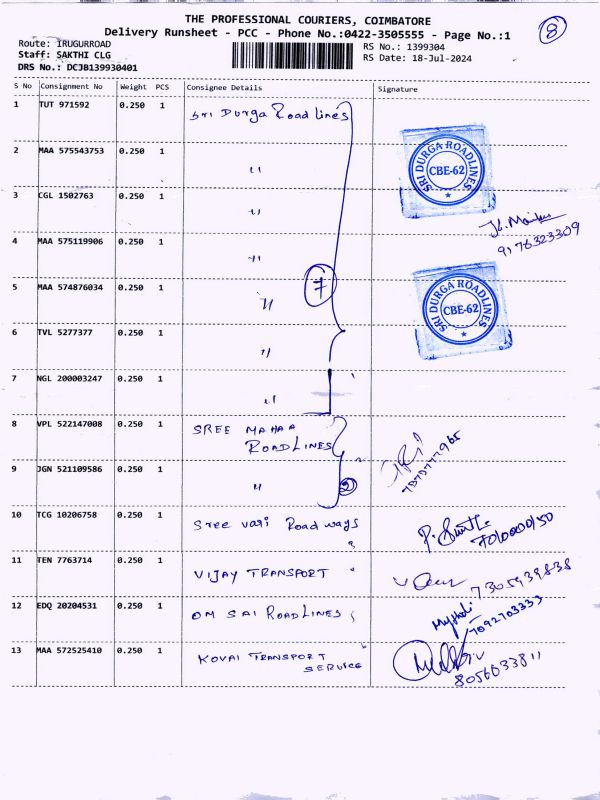 THE PROFESSIONAL COURIERS, COIMBATORE
8
Delivery Runsheet - PCC - Phone No.:0422-3505555 - Page No.:1
Route: IRUGURROAD
RS No.: 1399304
Staff: SAKTHI CLG
RS Date: 18-Jul-2024
DRS No.: DCJB139930401
S No Consignment No Weight PCS Consignee Details Signature
1 TUT 971592 0.250 1 Sri Durga Road lines
2 MAA 575543753 0.250 1 "
SRI DURGA ROADLINES
CBE-62
3 CGL 1502763 0.250 1 "
9176323309
4 MAA 575119906 0.250 1 "
5 MAA 574876034 0.250 1 "
7
SRI DURGA ROADLINES
CBE-62
6 TVL 5277377 0.250 1 "
7 NGL 200003247 0.250 1 "
8 VPL 522147008 0.250 1 SREE MAHAA
ROADLINES
9 JGN 521109586 0.250 1 "
2
10 TCG 10206758 0.250 1 Sree vari Road ways
11 TEN 7763714 0.250 1 VIJAY TRANSPORT " 7305939838
12 EDQ 20204531 0.250 1 OM SAI ROADLINES
7092703333
13 MAA 572525410 0.250 1 KOVAI TRANSPORT
SERVICE
8056033811